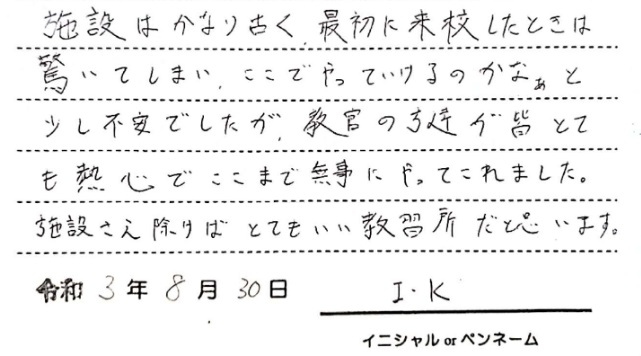 施設はかなり古く、最初に来校したときは
驚いてしまい、ここでやっていけるのかなぁと
少し不安でしたが、教官の方達が皆とて
も熱心でここまで無事にやってこれました。
施設さえ除けばとてもいい教習所だと思います。
令和 3 年 8 月 30 日 I・K
イニシャル or ペンネーム